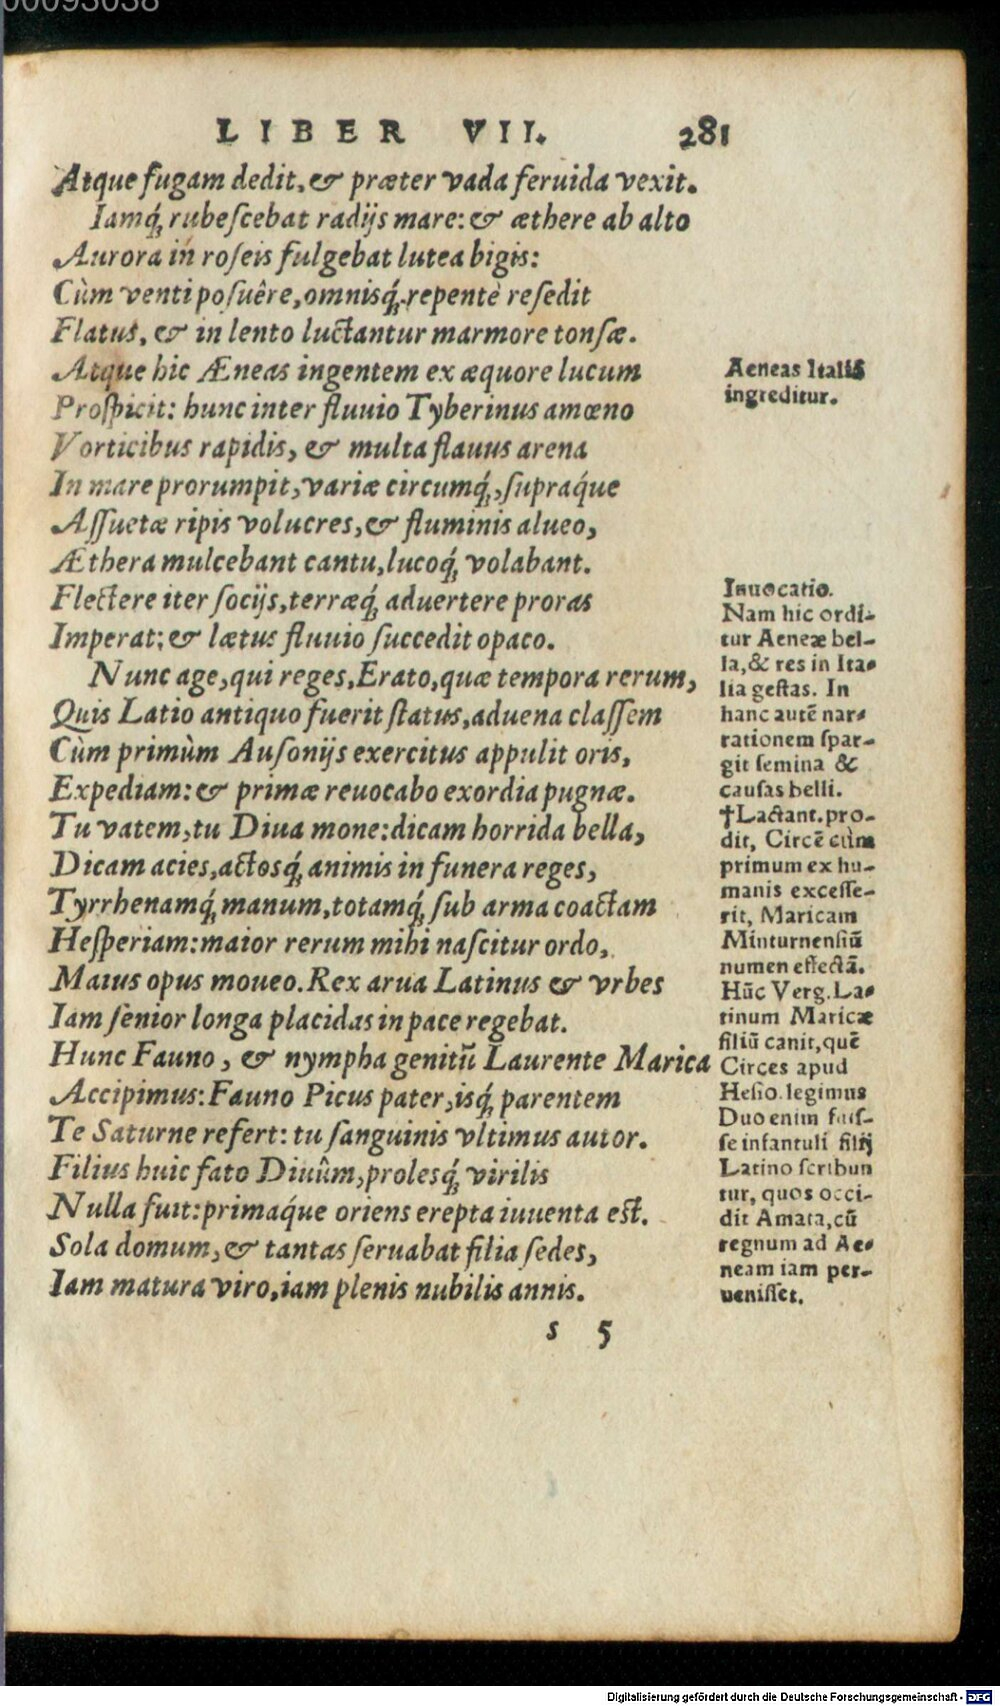 00093038
LIBER VII. 281
Atque fugam dedit, & præter vada feruida vexit.
Iamq́; rubeſcebat radijs mare: & æthere ab alto
Aurora in roſeis fulgebat lutea bigis:
Cùm venti poſuêre, omnisq́; repentè reſedit
Flatus, & in lento luctantur marmore tonſæ.
Atque hic Æneas ingentem ex æquore lucum
Proſpicit: hunc inter fluuio Tyberinus amœno
Vorticibus rapidis, & multa flauus arena
In mare prorumpit, variæ circumq́;, ſupraq́ue
Aſſuetæ ripis volucres, & fluminis alueo,
Æthera mulcebant cantu, lucoq́; volabant.
Flectere iter ſocijs, terræq́; aduertere proras
Imperat: & lætus fluuio ſuccedit opaco.
Nunc age, qui reges, Erato, quæ tempora rerum,
Quis Latio antiquo fuerit ſtatus, aduena claſſem
Cùm primùm Auſonijs exercitus appulit oris,
Expediam: & primæ reuocabo exordia pugnæ.
Tu vatem, tu Diua mone: dicam horrida bella,
Dicam acies, actosq́; animis in funera reges,
Tyrrhenamq́; manum, totamq́; ſub arma coactam
Heſperiam: maior rerum mihi naſcitur ordo,
Maius opus moueo. Rex arua Latinus & vrbes
Iam ſenior longa placidas in pace regebat.
Hunc Fauno, & nympha genitū Laurente Marica
Accipimus: Fauno Picus pater, isq́; parentem
Te Saturne refert: tu ſanguinis vltimus autor.
Filius huic fato Diuûm, prolesq́; virilis
Nulla fuit: primaq́ue oriens erepta iuuenta est.
Sola domum, & tantas ſeruabat filia ſedes,
Iam matura viro, iam plenis nubilis annis.
s 5
Aeneas Italiā
ingreditur.
Inuocatio.
Nam hic ordi-
tur Aeneæ bel-
la, & res in Ita-
lia geſtas. In
hanc autē nar-
rationem ſpar-
git ſemina &
cauſas belli.
†Lactant. pro-
dit, Circē cùm
primum ex hu-
manis exceſſe-
rit, Maricam
Minturnenſiū
numen effectā.
Hūc Verg. La-
tinum Maricæ
filiū canit, quē
Circes apud
Heſio. legimus
Duo enim fuiſ-
ſe infantuli filij
Latino ſcribun
tur, quos occi-
dit Amata, cū
regnum ad Ae-
neam iam per-
ueniſſet.
Digitalisierung gefördert durch die Deutsche Forschungsgemeinschaft - DFG